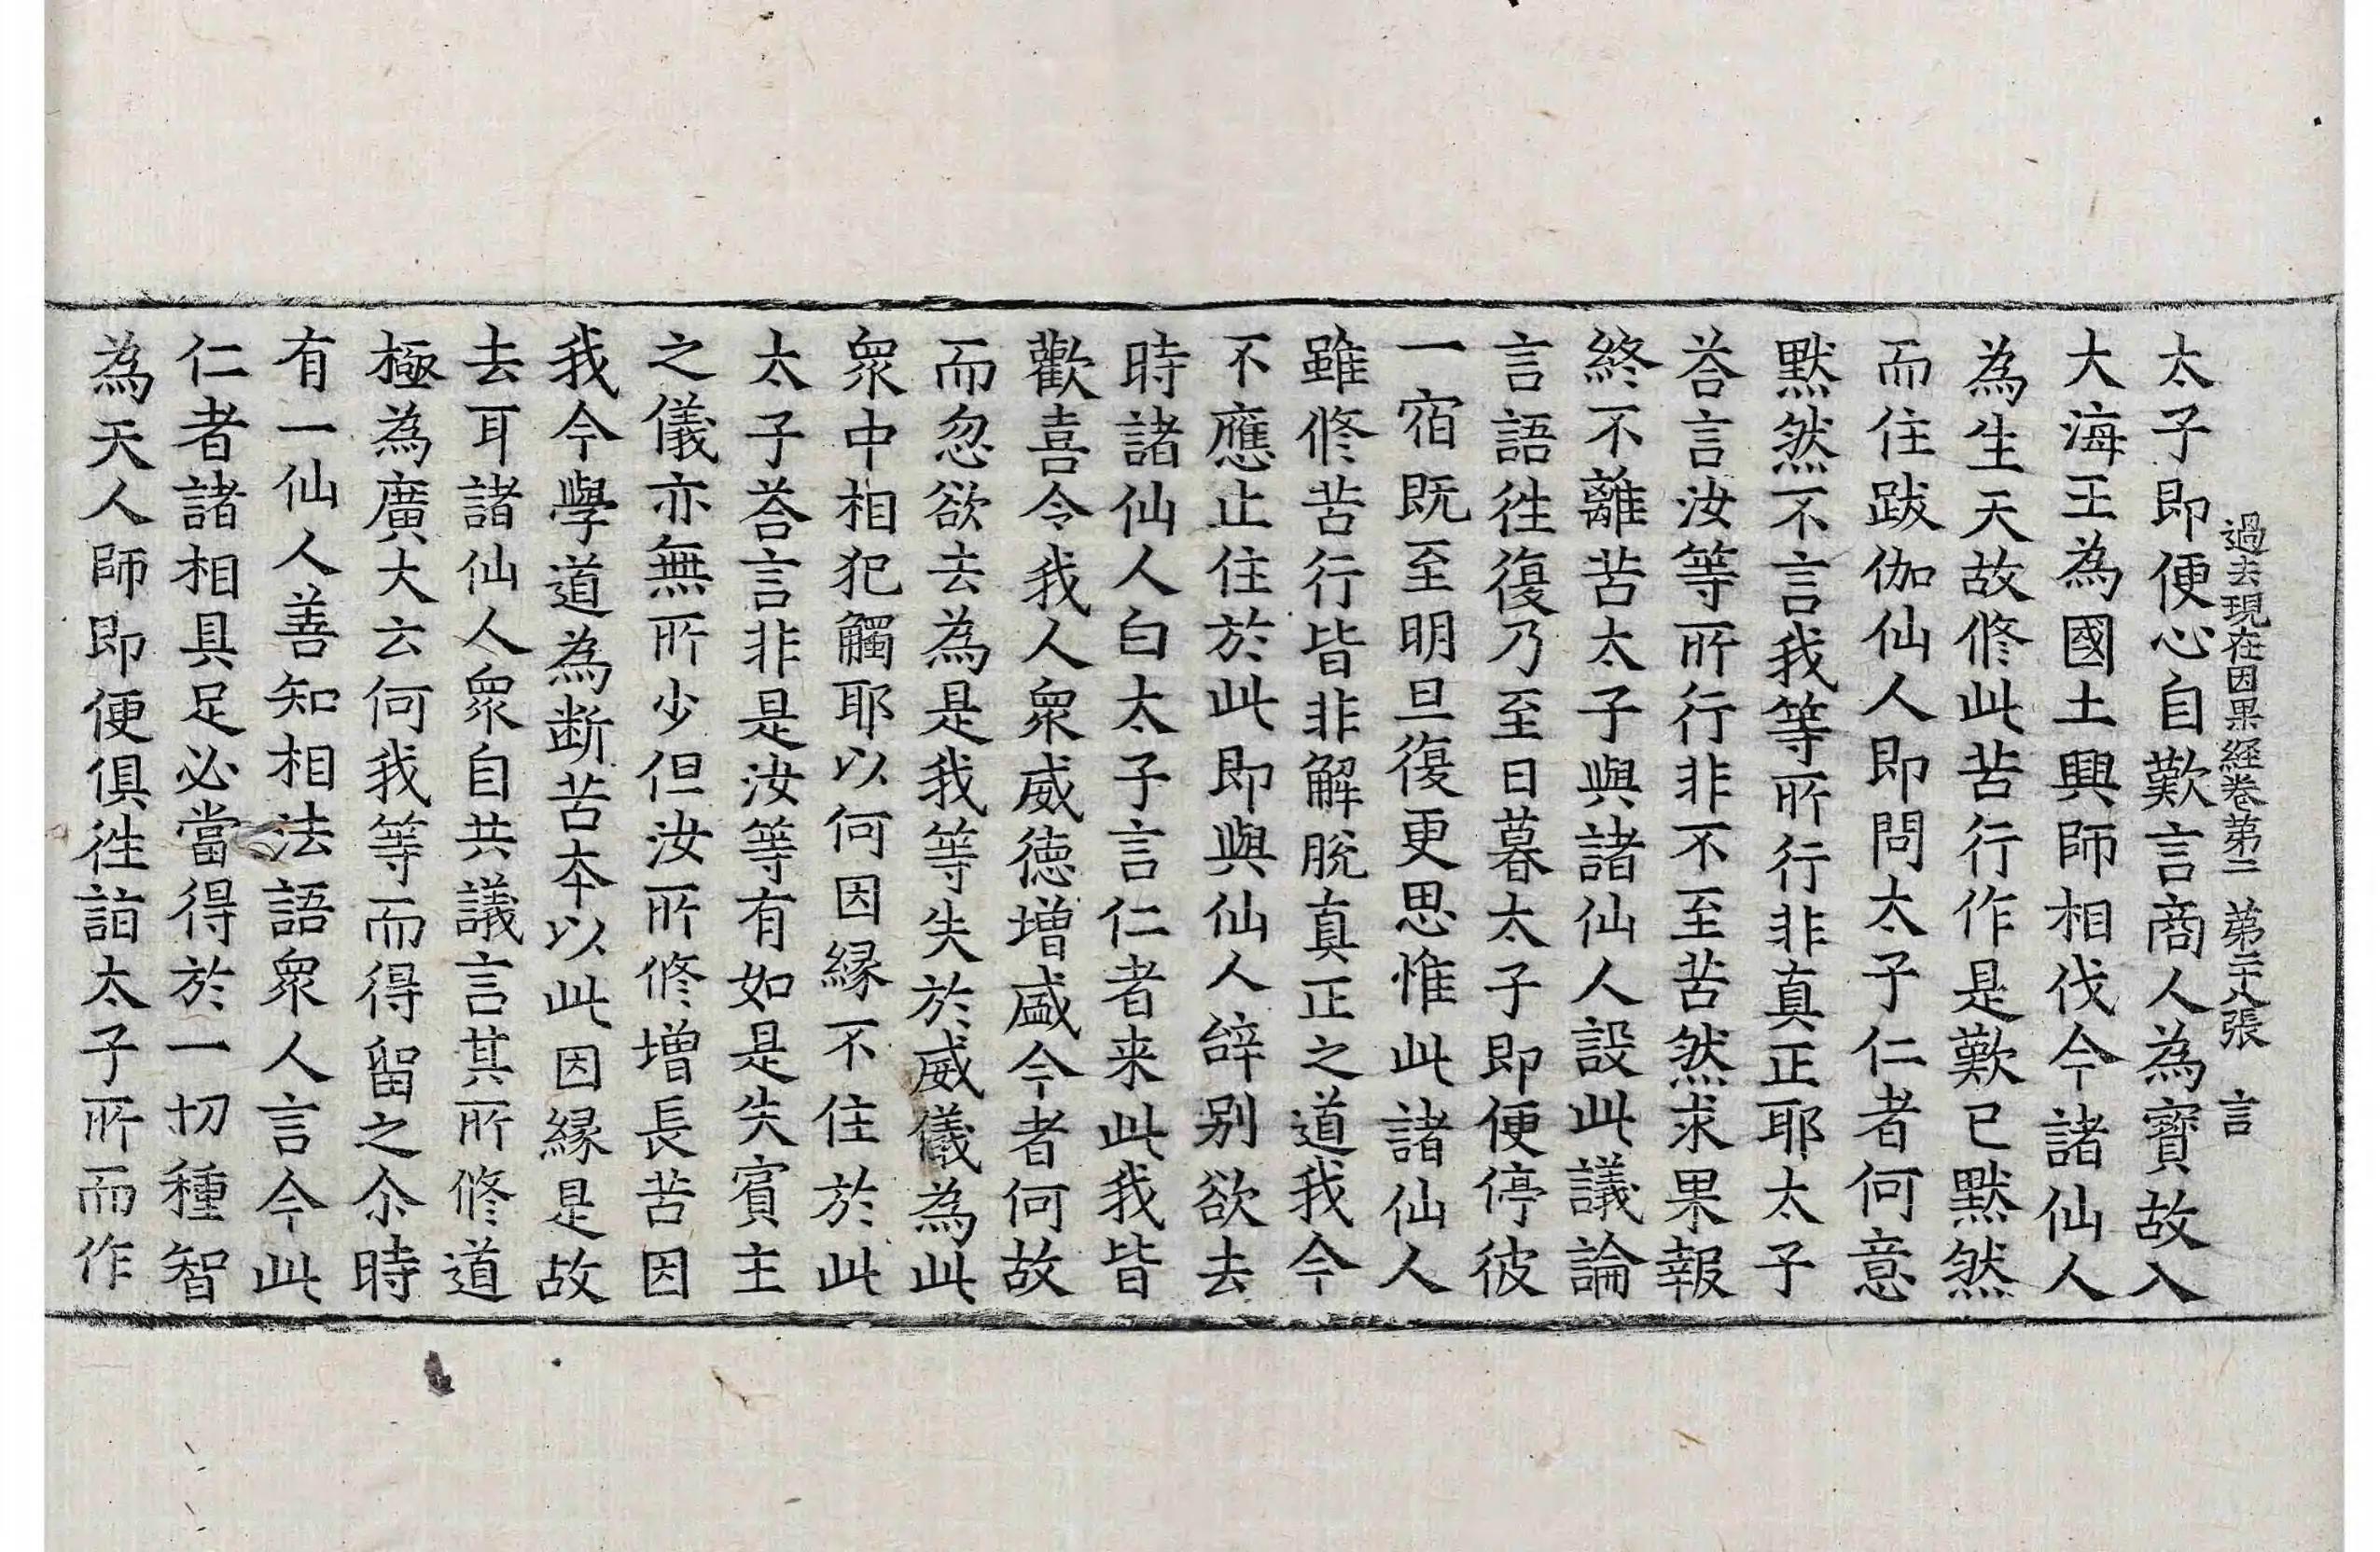 過去現在因果經卷第二 第二十八張 言
太子即便心自歎言商人為寶故入
大海王為國土興師相伐今諸仙人
為生天故修此苦行作是歎已默然
而住跋伽仙人即問太子仁者何意
默然不言我等所行非真正耶太子
荅言汝等所行非不至苦然求果報
終不離苦太子與諸仙人設此議論
言語往復乃至日暮太子即便停彼
一宿既至明旦復更思惟此諸仙人
雖修苦行皆非解脫真正之道我今
不應止住於此即與仙人辝别欲去
時諸仙人白太子言仁者来此我皆
歡喜令我人衆威德增盛今者何故
而忽欲去為是我等失於威儀為此
衆中相犯觸耶以何因縁不住於此
太子荅言非是汝等有如是失賓主
之儀亦無所少但汝所修增長苦因
我今學道為断苦本以此因縁是故
去耳諸仙人衆自共議言其所修道
極為廣大云何我等而得留之尒時
有一仙人善知相法語衆人言今此
仁者諸相具足必當得於一切種智
為天人師即便俱往詣太子所而作